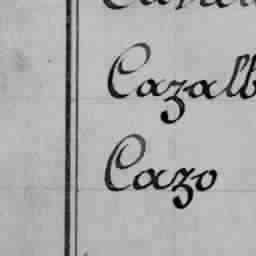 Cazalb
Cazo